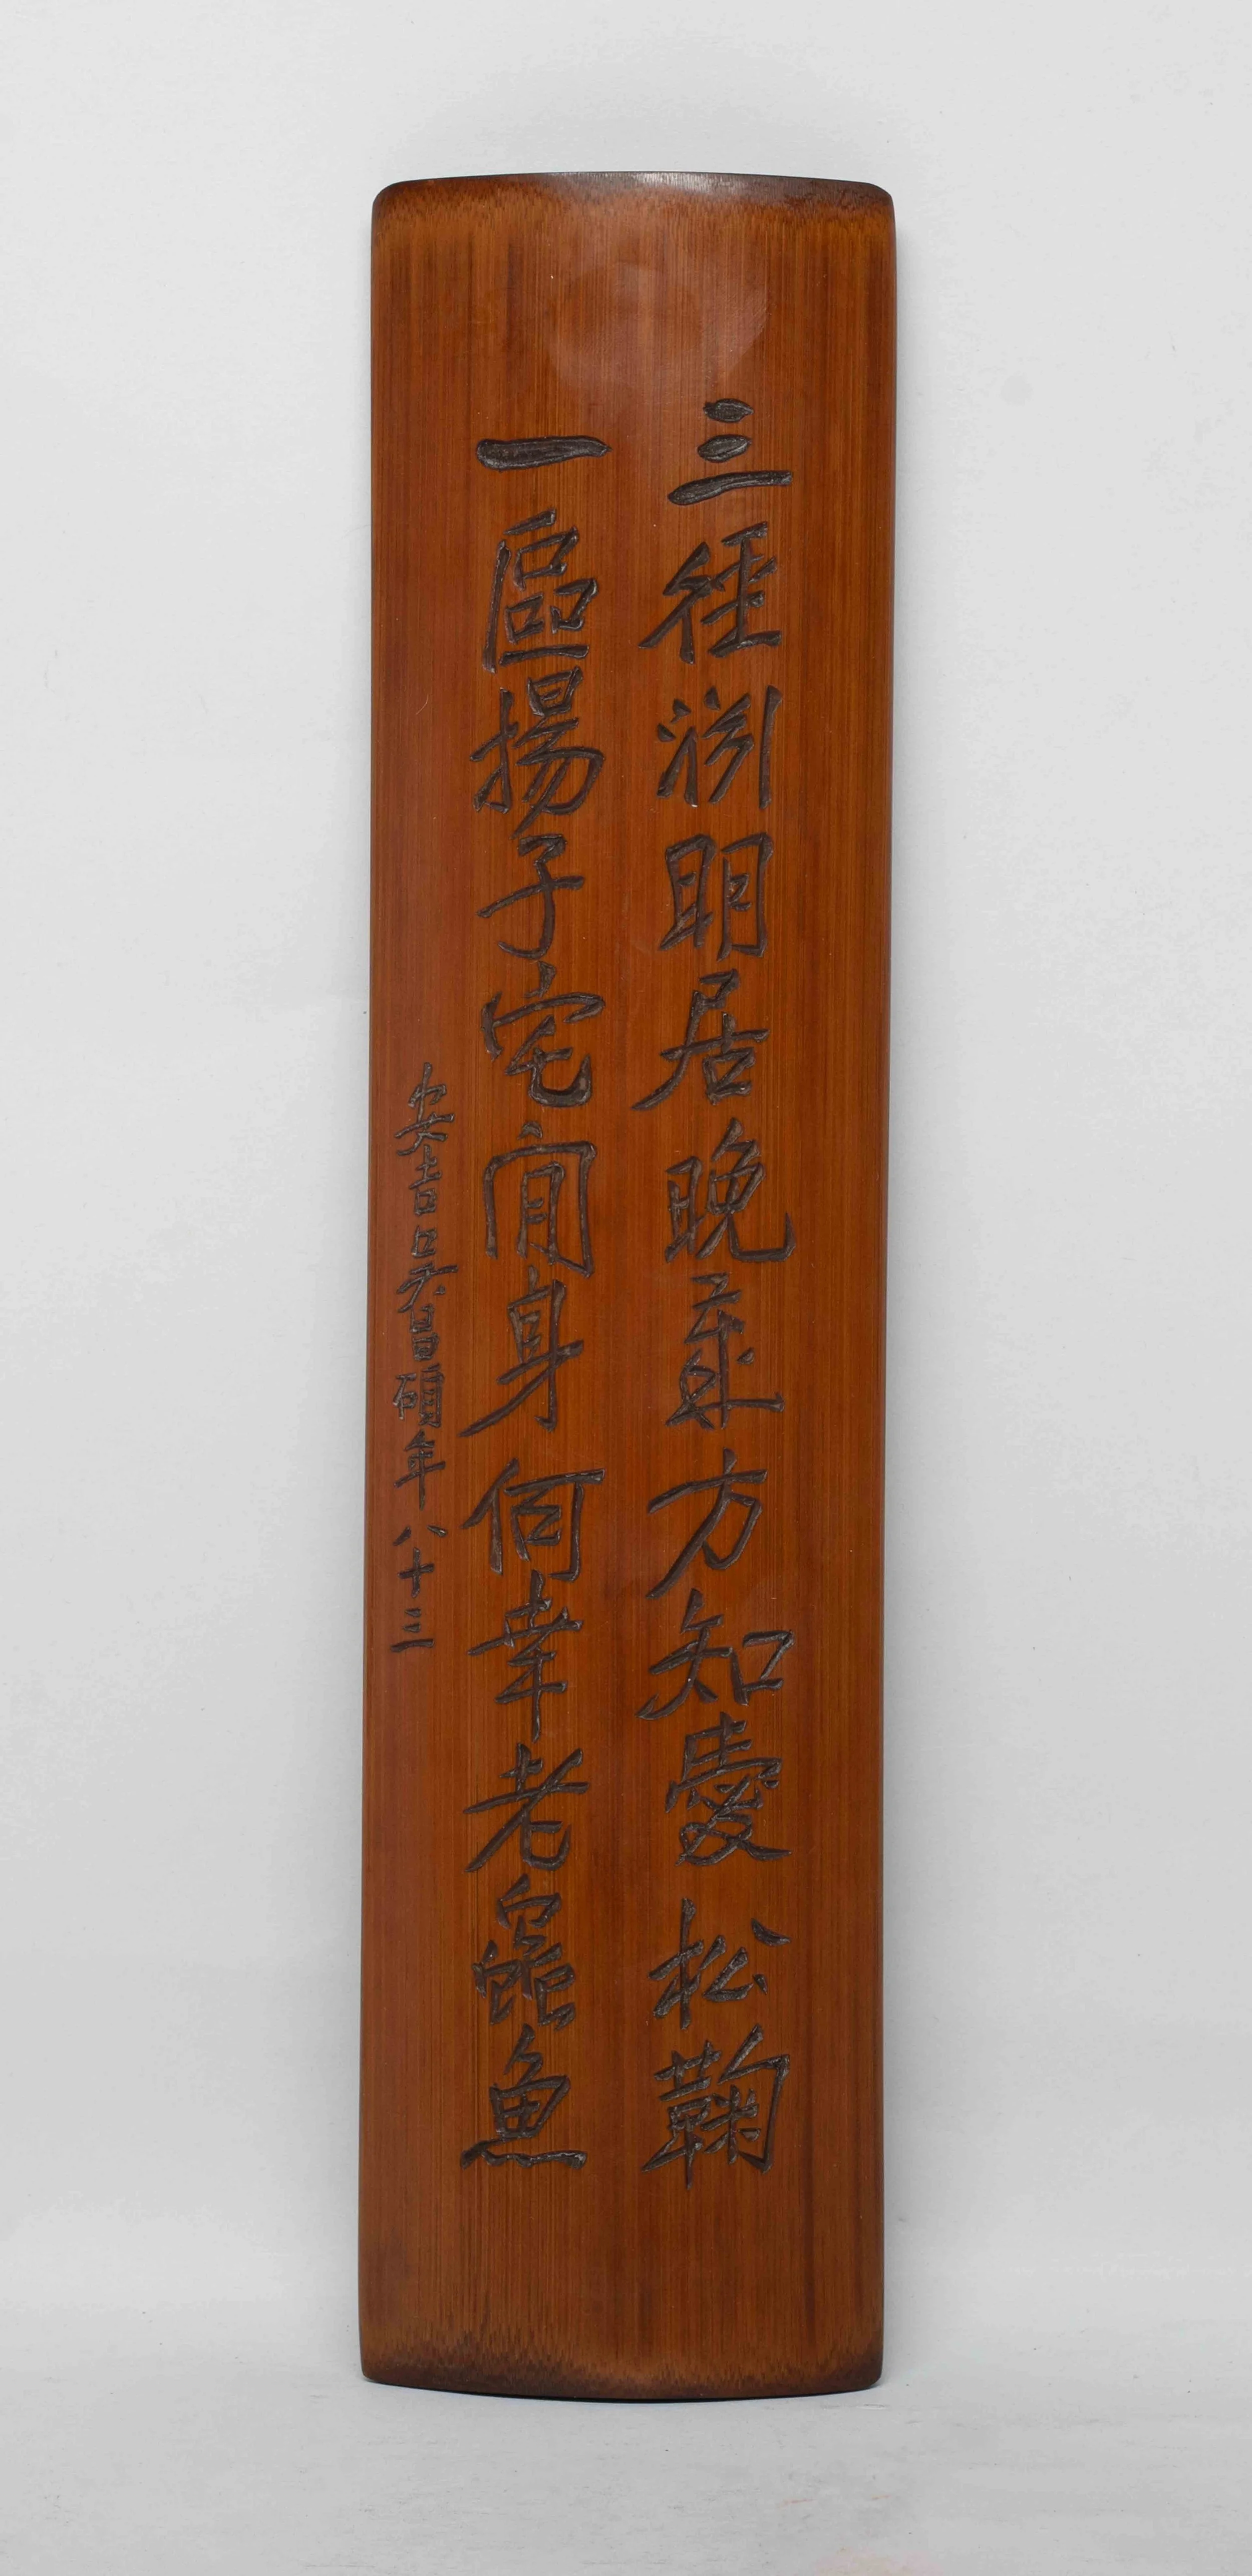 三徑淵明居晚歲方知愛松鞠
一區揚子宅閒身何幸老蟲魚
安吉吳昌碩年八十三